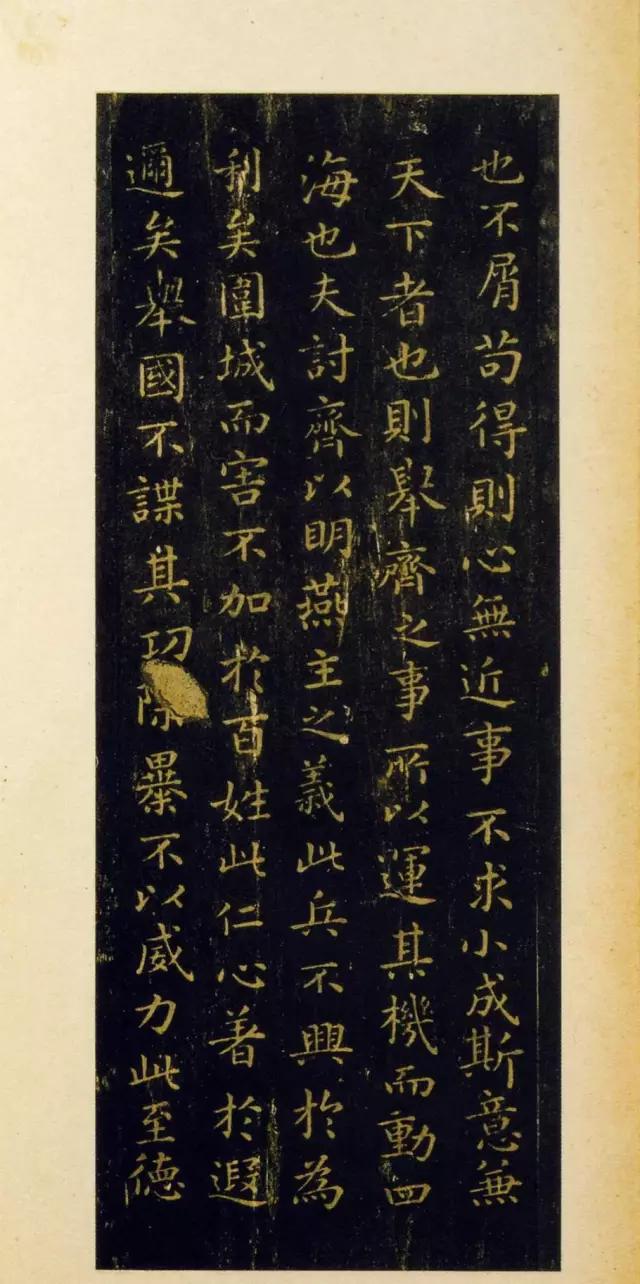 也不屑苟得則心無近事不求小成斯意無
天下者也則舉齊之事所以運其機而動四
海也夫討齊以明燕主之義此兵不興於為
利矣圍城而害不加於百姓此仁心著於遐
邇矣舉國不謀其功除暴不以威力此至德